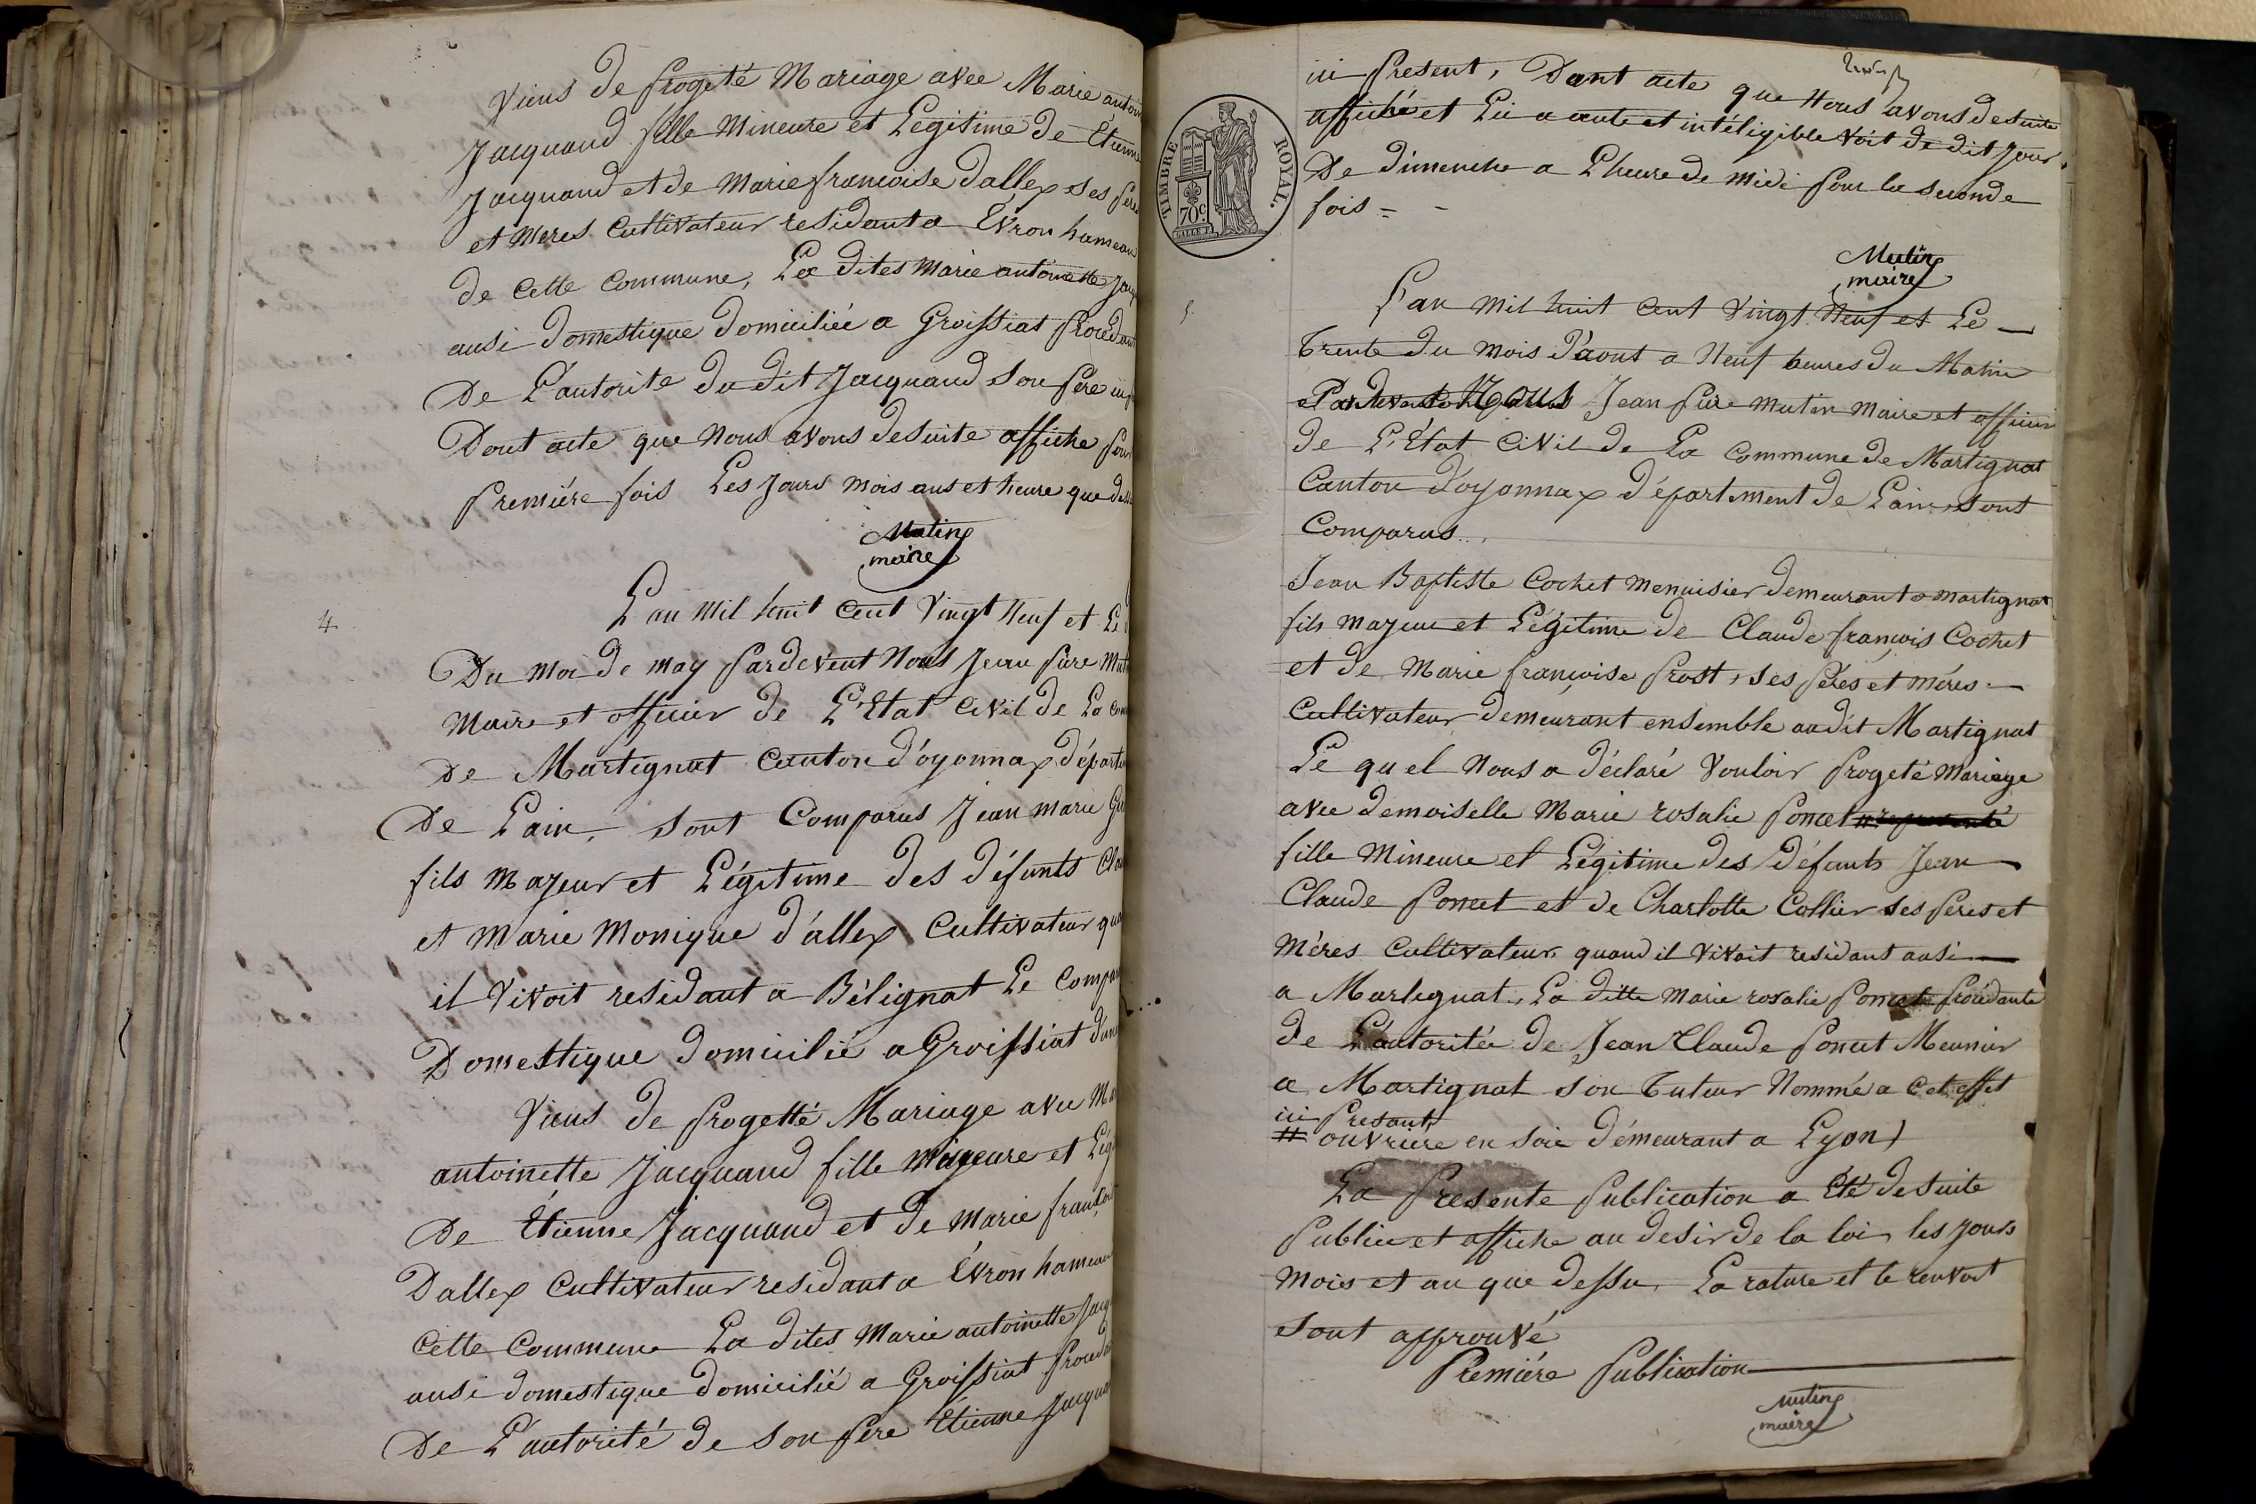 Viens de progeté Mariage avec Marie antoin
Jacquand fille Mineure et Légitime de Étienne
Jacquand et de Marie françoise dallex ses pere
et Meres Cultivateur residant a Évron hameau
de Cette Commune, La dites Marie antoinette Jacq
ausi domestique domiciliée a Groissiat procédant
De L'autorite du dit Jacquand son pere
Dont acte que Nous avons desuite affiche pour
premiére fois Les Jours mois ans et heure que
Mutin
maire
4
L'an Mil huit cent Vingt Neuf et Le
Du moi de may pardevent Nous Jean pire Mut
Maire et officier de L'Etat Civil de La com
De Martignat Canton d'oyonnax départe
De Lain, sont Comparus Jean Marie
fils Majeur et Légitime des défunts Cla
et Marie Monique d'allex Cultivateur qua
il Vivoit residant a Bélignat Le Compa
Domestique domicilié a Groissiat
Viens de progetté Mariage avec Ma
antoinette Jacquand fille Majeure et Lég
De Étienne Jacquand et de Marie franç
Dallex Cultivateur residant a Évron hameau
Cette Commune La dites Marie antoinette Jacq
ausi domestique domicilié a Groissiat proced
De L'autorité de son pere Étienne Jacqua
ici present, Dont acte que Nous avons desuite
affiché et Lu a aute et intéligible Voit de dit Jour
De dimenche a L'heure de midi pour la seconde
fois =
TIMBRE ROYAL.
70c
Mutin
maire
5
L'an mil huit Cent Vingt Neuf et Le
Trente du mois d'aout a Neuf heures du Matin
Pardevant Nous Jean pire Mutin Maire et officier
de L'État Civil de La Commune de Martignat
Canton d'oyonnax département de Lain, sont
Comparus
Jean Baptiste Cochet Menuisier demeurant a Martignat
fils Majeur et Légitime de Claude françois Cochet
et de Marie françoise prost, ses péres et méres
Cultivateur demeurant ensemble audit Martignat
Le quel Nous a déclaré Vouloir progeté Mariage
avec demoiselle Marie rosalie poncet
fille Mineure et Légitime des défunts Jean
Claude poncet et de Charlotte Collier ses peres et
Méres Cultivateur quand il Vivoit residant ausi
a Martignat, La ditte Marie rosalie poncet procédante
de L'autoritée de Jean Claude poncet Meunier
a Martignat son Tuteur Nommé a cet effet
ici presant,
# ouvriere en soie démeurant a Lyon)
La presente publication a Été desuite
publiee et affiche au desir de la loi les jours
mois et an que dessu, La rature et le renvoit
sont approuvé
premiére publication
Mutin
maire